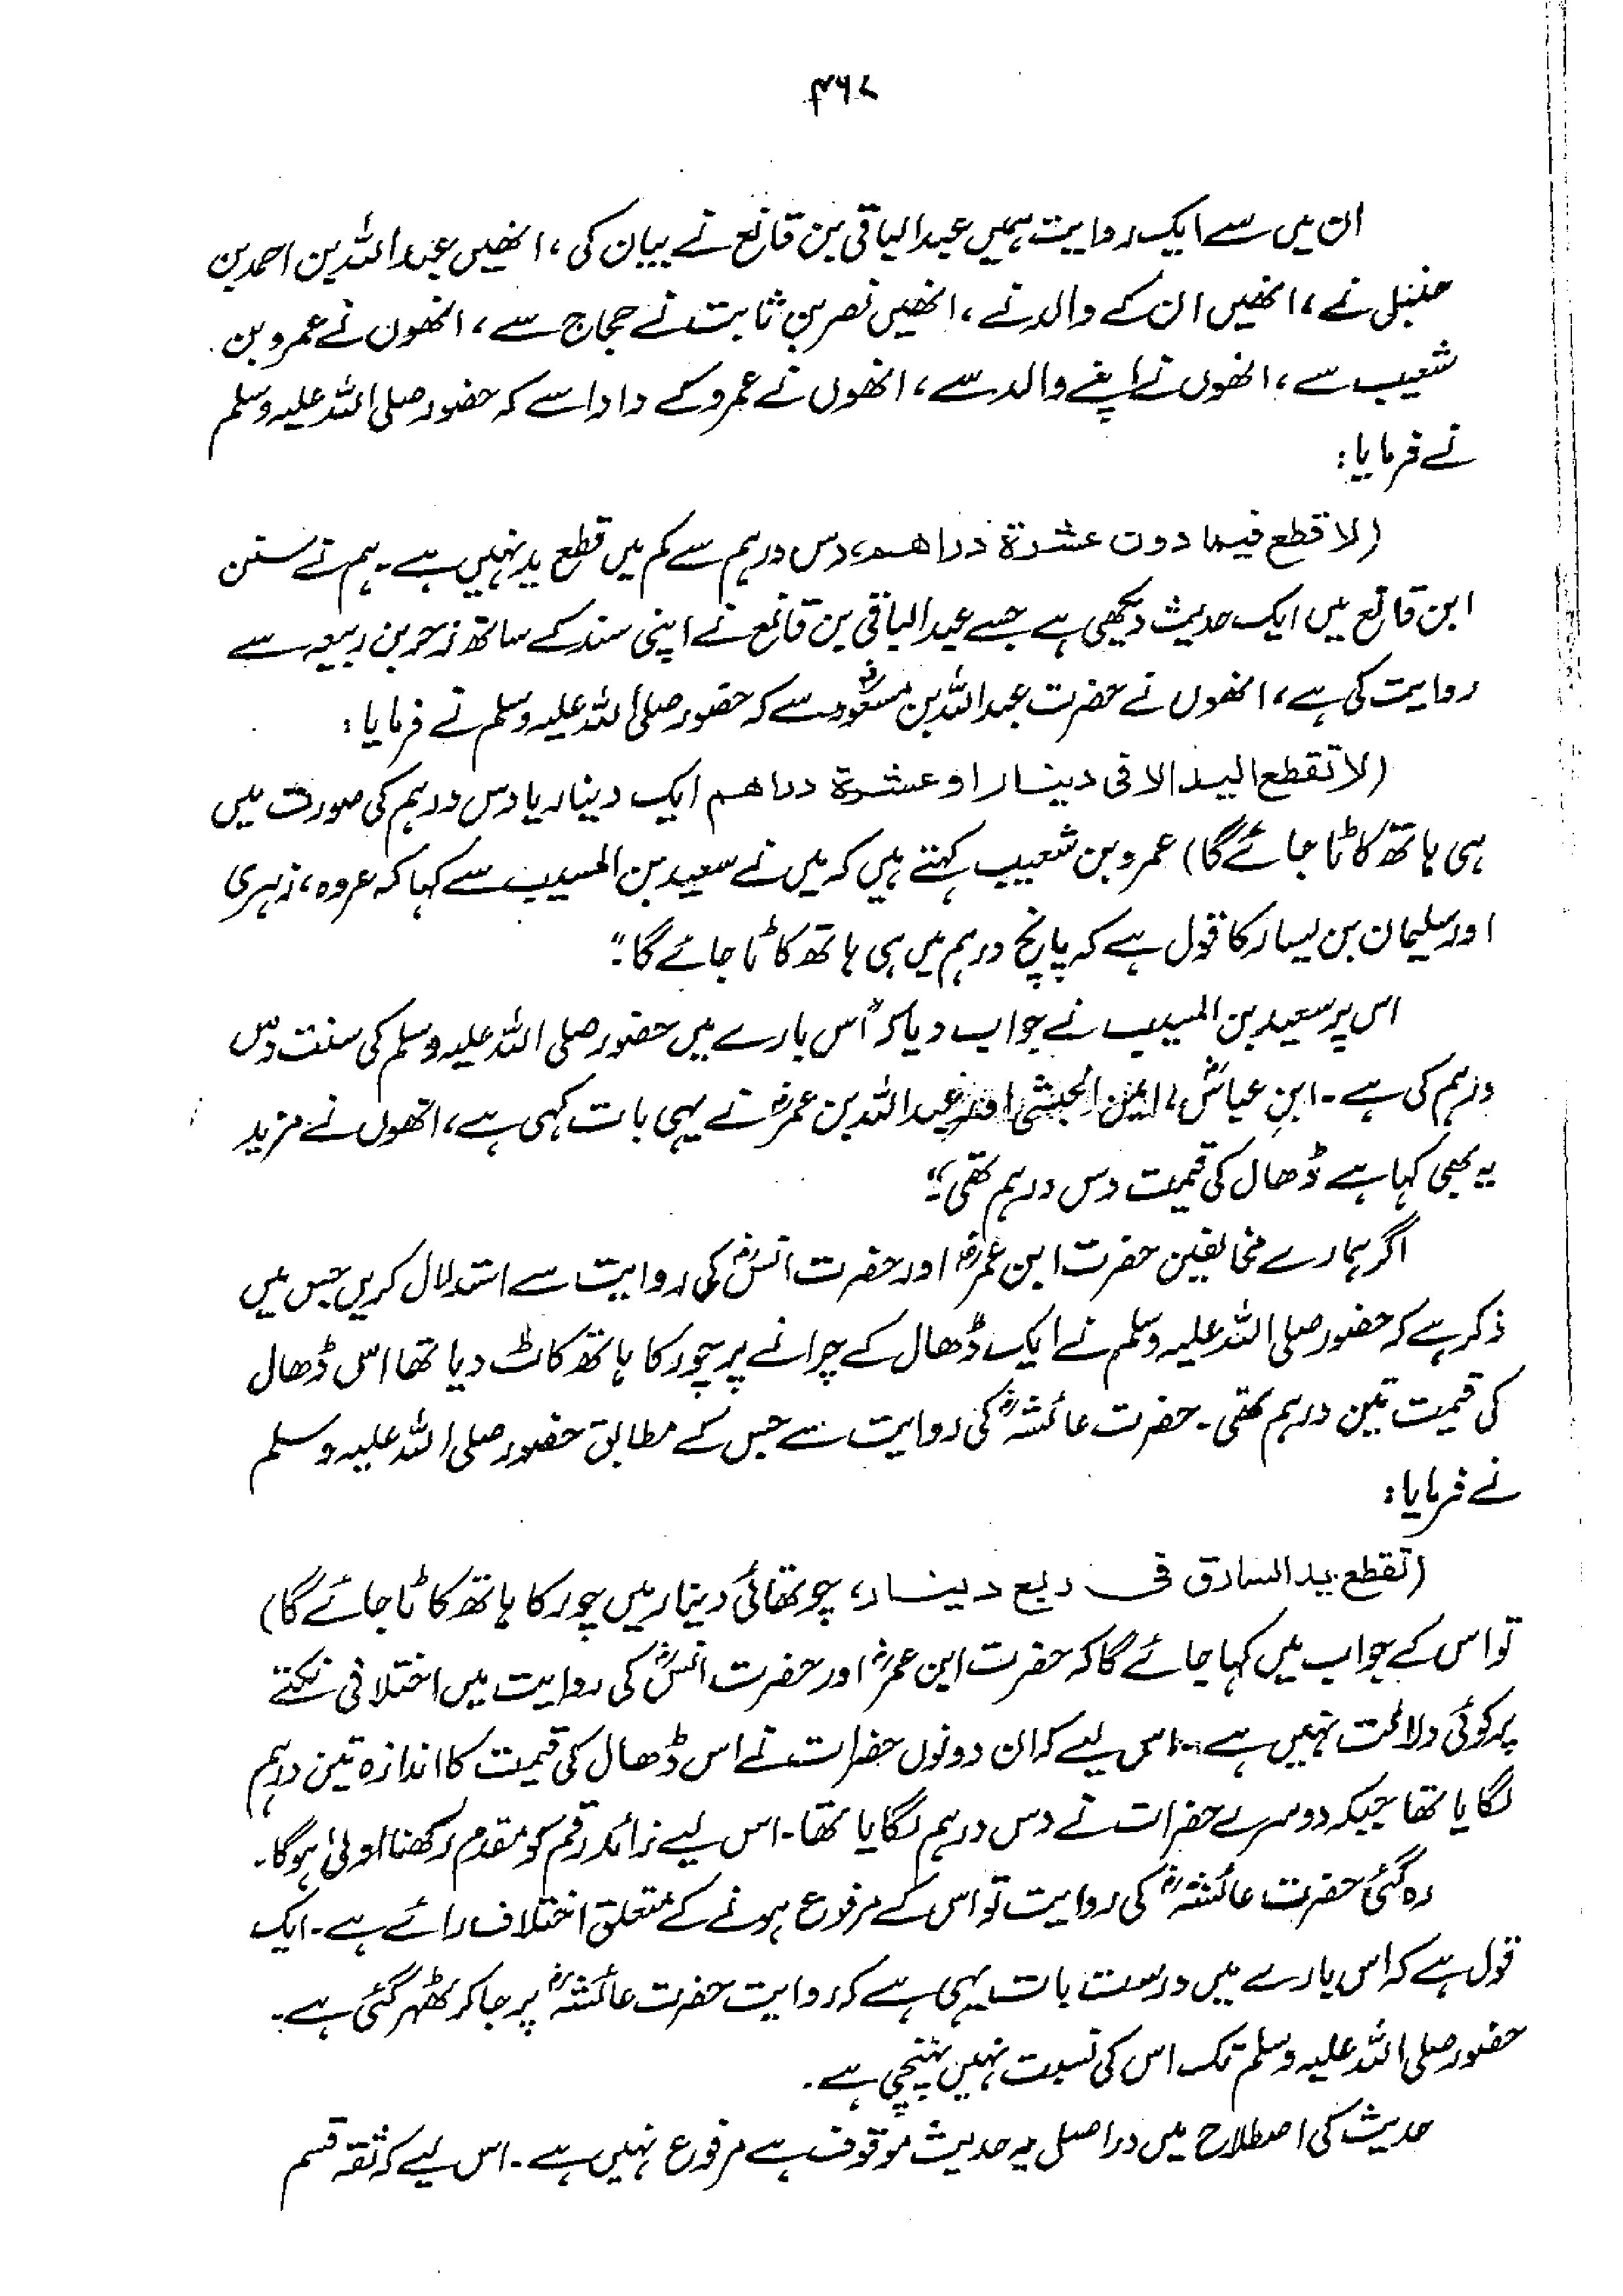 ۴۶۷
ان میں سے ایک روایت ہمیں عبدالباقی بن قانع نے بیان کی، انھیں عبداللہ بن احمد بن
حنبل نے، انھیں ان کے والد نے، انھیں نصر بن ثابت نے حجاج سے، انھوں نے عمرو بن
شعیب سے، انھوں نے اپنے والد سے، انھوں نے عمرو کے دادا سے کہ حضور صلی اللہ علیہ وسلم
نے فرمایا:
(لا قطع فیما دون عشرۃ دراھم، دس درہم سے کم میں قطع ید نہیں ہے۔ ہم نے سنن
ابن قانع میں ایک حدیث دیکھی ہے جسے عبدالباقی بن قانع نے اپنی سند کے ساتھ زحر بن ربیعہ سے
روایت کی ہے، انھوں نے حضرت عبداللہ بن مسعودؓ سے کہ حضور صلی اللہ علیہ وسلم نے فرمایا:
(لا تقطع الید الا فی دینار او عشرۃ دراھم ایک دینار یا دس درہم کی صورت میں
ہی ہاتھ کاٹا جائے گا) عمرو بن شعیب کہتے ہیں کہ میں نے سعید بن المسیب سے کہا کہ عروہ، زہری
اور سلیمان بن یسار کا قول ہے کہ پانچ درہم میں ہی ہاتھ کاٹا جائے گا۔"
اس پر سعید بن المسیب نے جواب دیا کہ "اس بارے میں حضور صلی اللہ علیہ وسلم کی سنت دس
درہم کی ہے۔ ابن عباسؓ، ایمن الحبشی اور عبداللہ بن عمرؓ نے یہی بات کہی ہے، انھوں نے مزید
یہ بھی کہا ہے ڈھال کی قیمت دس درہم تھی۔"
اگر ہمارے مخالفین حضرت ابن عمرؓ اور حضرت انسؓ کی روایت سے استدلال کریں جس میں
ذکر ہے کہ حضور صلی اللہ علیہ وسلم نے ایک ڈھال کے چرانے پر چور کا ہاتھ کاٹ دیا تھا اس ڈھال
کی قیمت تین درہم تھی۔ حضرت عائشہؓ کی روایت سے جس کے مطابق حضور صلی اللہ علیہ وسلم
نے فرمایا:
(تقطع ید السارق فی ربع دینار، چوتھائی دینار میں چور کا ہاتھ کاٹا جائے گا)
تو اس کے جواب میں کہا جائے گا کہ حضرت ابن عمرؓ اور حضرت انسؓ کی روایت میں اختلافی نکتے
پر کوئی دلالت نہیں ہے۔ اس لیے کہ ان دونوں حضرات نے اس ڈھال کی قیمت کا اندازہ تین درہم
لگایا تھا جبکہ دوسرے حضرات نے دس درہم لگایا تھا۔ اس لیے زائد رقم کو مقدم رکھنا اولیٰ ہوگا۔
رہ گئی حضرت عائشہؓ کی روایت تو اس کے مرفوع ہونے کے متعلق اختلاف رائے ہے۔ ایک
قول ہے کہ اس بارے میں درست بات یہی ہے کہ روایت حضرت عائشہؓ پر جا کر ٹھہر گئی ہے۔
حضور صلی اللہ علیہ وسلم تک اس کی نسبت نہیں پہنچی ہے۔
حدیث کی اصطلاح میں دراصل یہ حدیث موقوف ہے مرفوع نہیں ہے۔ اس لیے کہ ثقہ قسم